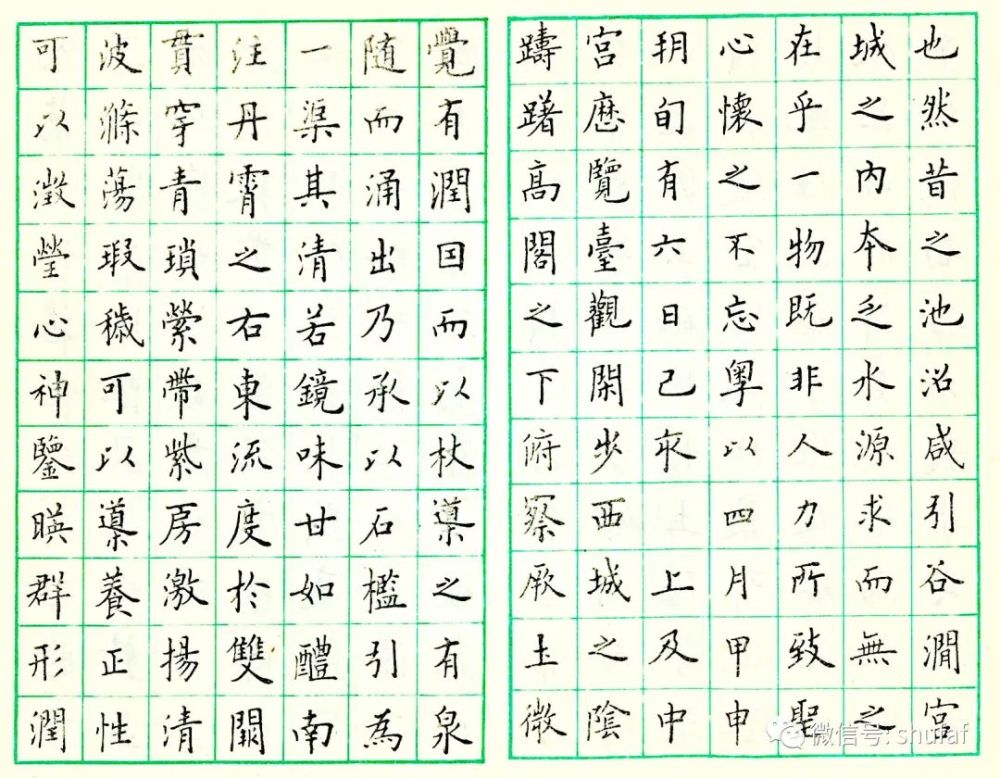 也然昔之池沼咸引谷澗宮
城之內本乏水源求而無之
在乎一物既非人力所致聖
心懷之不忘粵以四月甲申
朔旬有六日己亥上及中
宮歷覽臺觀閑步西城之陰
躊躇高閣之下俯察厥土微
覺有潤因而以杖導之有泉
隨而涌出乃承以石檻引為
一渠其清若鏡味甘如醴南
注丹霄之右東流度於雙闕
貫穿青瑣縈帶紫房激揚清
波滌蕩瑕穢可以導養正性
可以澂瑩心神鑒暎群形潤
微信号: shufaf